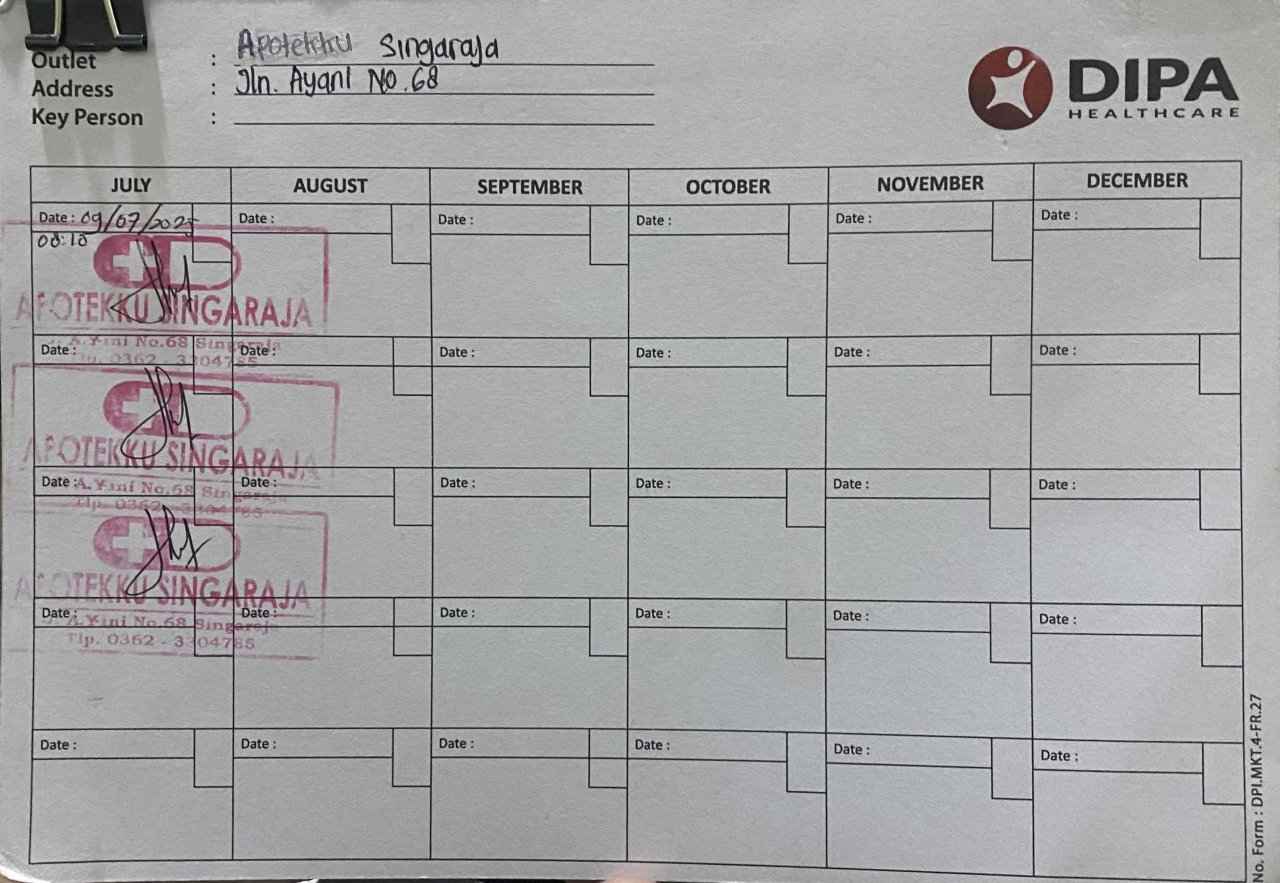 Outlet : Apotekku Singaraja
Address : Jln. Ayani No.68
Key Person :
DIPA
HEALTHCARE
JULY AUGUST SEPTEMBER OCTOBER NOVEMBER DECEMBER
Date : 09/07/2025 Date : Date : Date : Date : Date :
08:10
APOTEKKU SINGARAJA
A.Yani No.68 Singaraja
Tlp. 0362 - 3304785
Date : Date : Date : Date : Date : Date :
APOTEKKU SINGARAJA
A.Yani No.68 Singaraja
Tlp. 0362 - 3304785
Date : Date : Date : Date : Date : Date :
APOTEKKU SINGARAJA
A.Yani No.68 Singaraja
Tlp. 0362 - 3304785
Date : Date : Date : Date : Date : Date :
Date : Date : Date : Date : Date : Date :
No. Form : DPI.MKT.4-FR.27